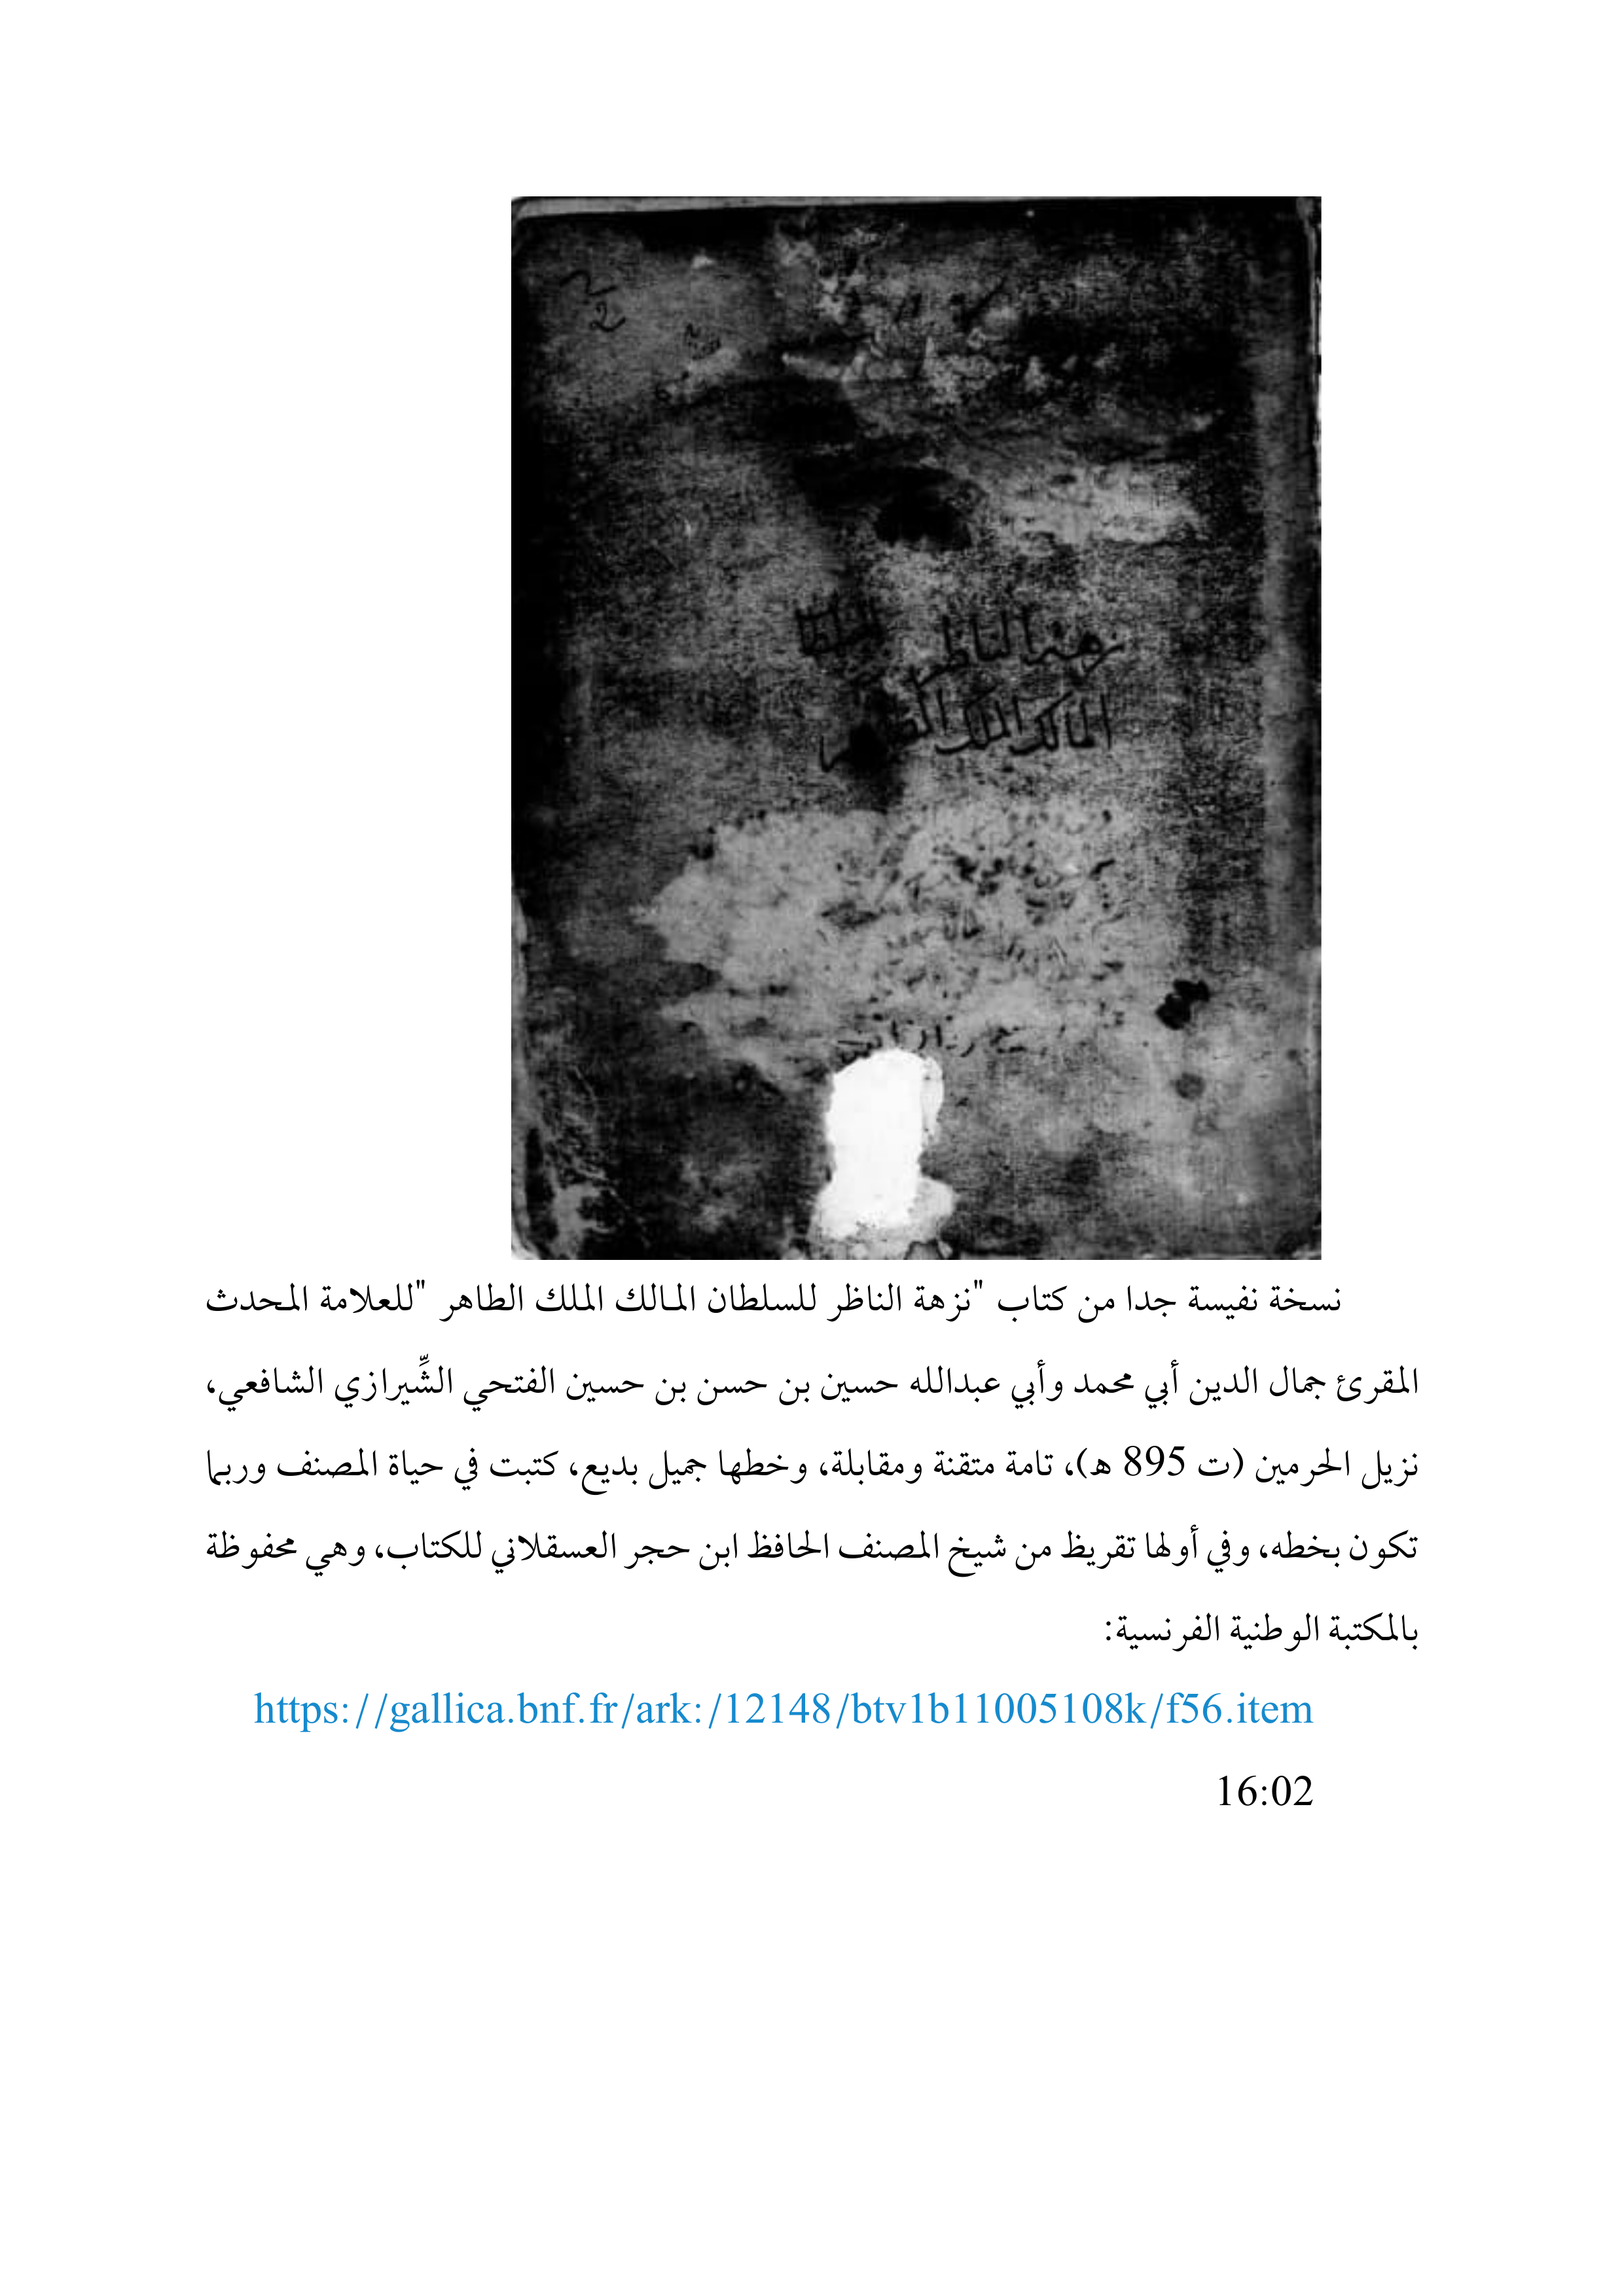 نزهة الناظر للسلطان
المالك الملك
نسخة نفيسة جدا من كتاب "نزهة الناظر للسلطان المالك الملك الطاهر "للعلامة المحدث
المقرئ جمال الدين أبي محمد وأبي عبدالله حسين بن حسن بن حسين الفتحي الشِّيرازي الشافعي،
نزيل الحرمين (ت 895 هـ)، تامة متقنة ومقابلة، وخطها جميل بديع، كتبت في حياة المصنف وربما
تكون بخطه، وفي أولها تقريظ من شيخ المصنف الحافظ ابن حجر العسقلاني للكتاب، وهي محفوظة
بالمكتبة الوطنية الفرنسية:
https://gallica.bnf.fr/ark:/12148/btv1b11005108k/f56.item
16:02